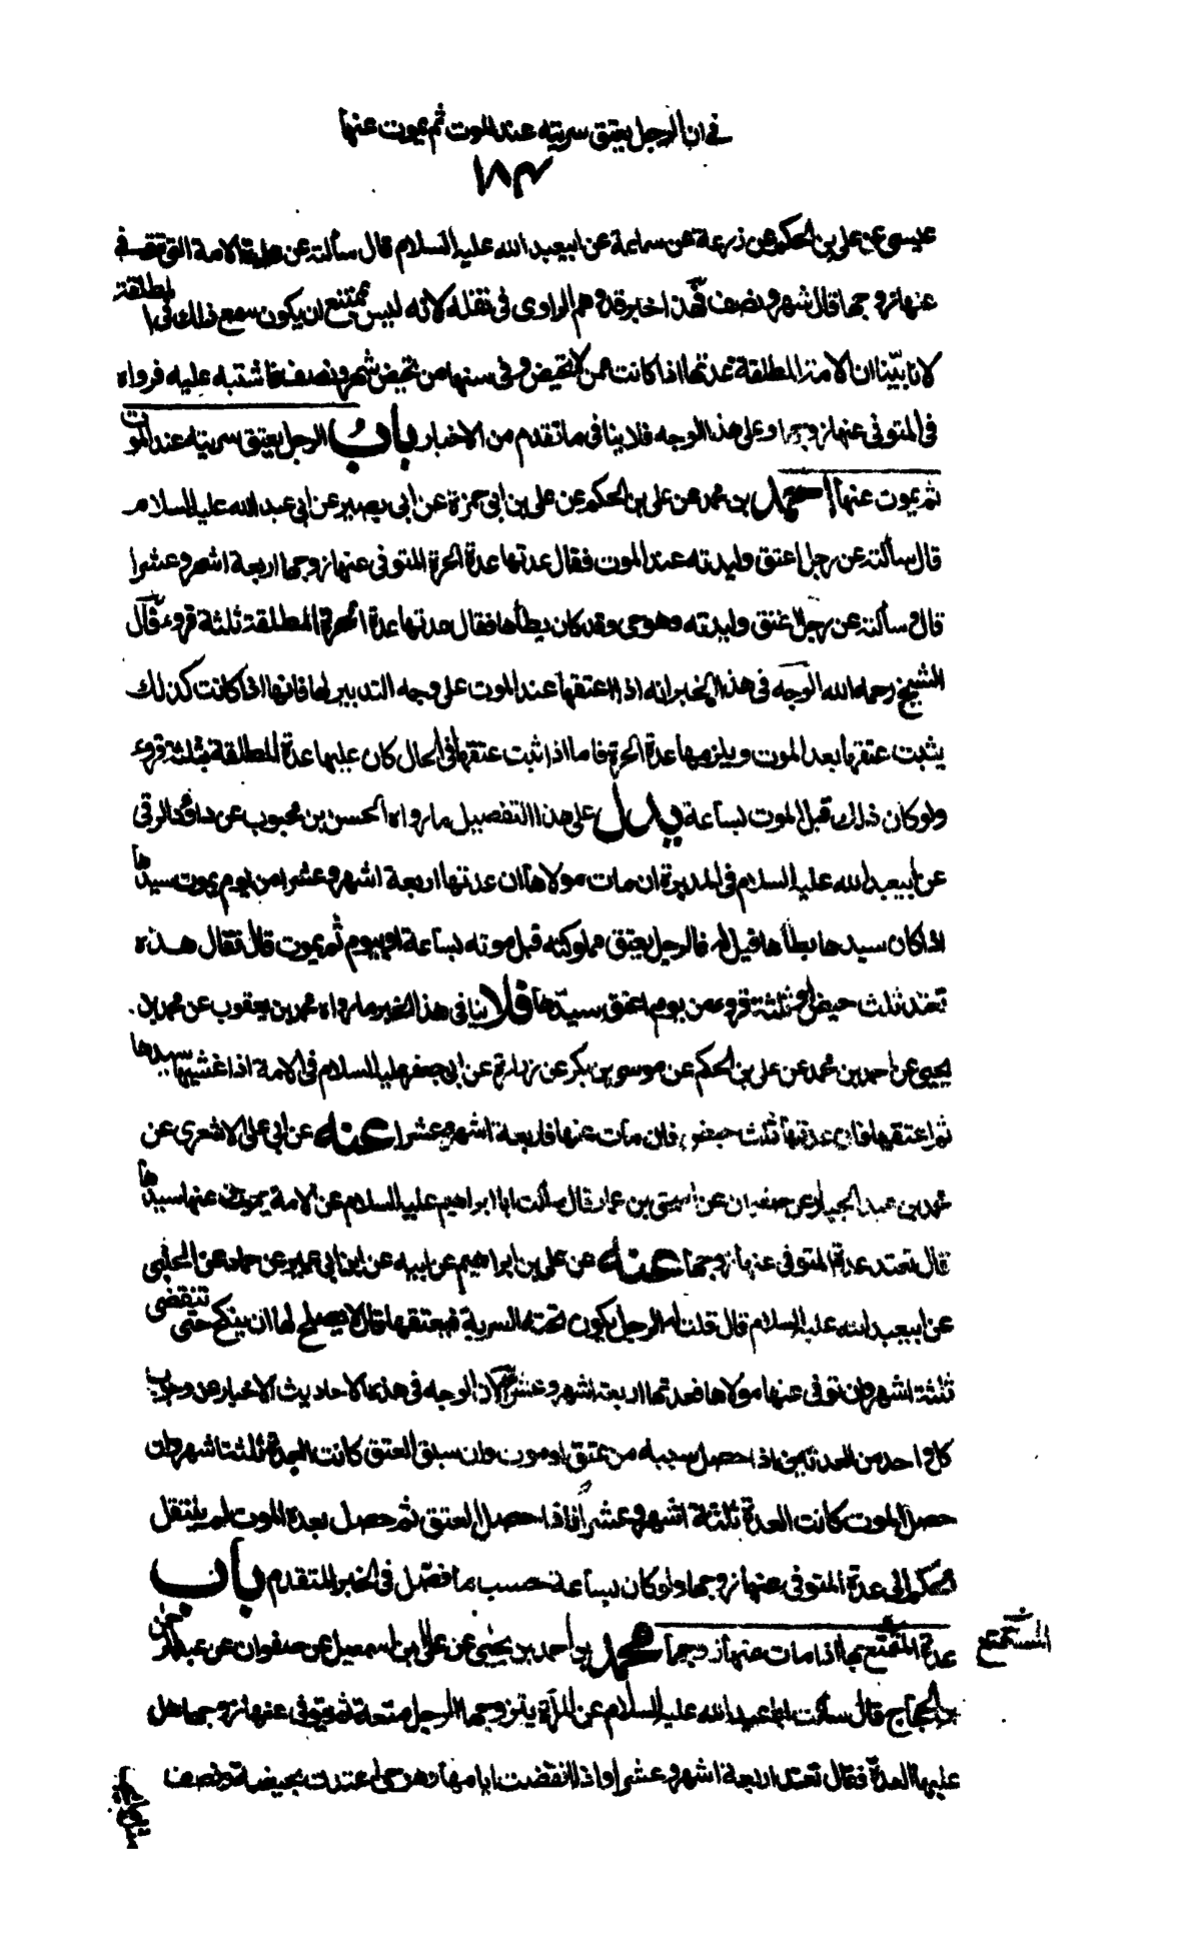 في ان الرجل يعتق سريته عند الموت ثم يموت عنها
١٨٣
عيسى عن علي بن الحكم عن زرعة عن سماعة عن ابيعبد الله عليه السلام قال سألته عن عدة الامة التي توفي
عنها زوجها قال شهر ونصف فهذا خبر قد وهم الراوى في نقله لانه ليس يمتنع ان يكون سمع ذلك في المطلقة
لانا بيّنا ان الامة المطلقة عدتها اذا كانت ممن لا تحيض وفي سنها من تحيض شهر ونصف فاشتبه عليه فرواه
في المتوفي عنها زوجها وعلى هذا الوجه فلا ينافي ما تقدم من الاخبار باب الرجل يعتق سريته عند الموت
ثم يموت عنها احمد بن محمد عن علي بن الحكم عن علي بن ابي حمزة عن ابي بصير عن ابي عبد الله عليه السلام
قال سألته عن رجل اعتق وليدته عند الموت فقال عدتها عدة الحرة المتوفى عنها زوجها اربعة اشهر وعشرا
قال وسألته عن رجل اعتق وليدته وهو حى وقد كان يطأها فقال عدتها عدة الحرة المطلقة ثلثة قروء قال
الشيخ رحمه الله الوجه في هذا الخبر انه اذا اعتقها عند الموت على وجه التدبير لها فانها اذا كانت كذلك
يثبت عتقها بعد الموت ويلزمها عدة الحرة فاما اذا ثبت عتقها في الحال كان عليها عدة المطلقة ثلثة قروء
ولو كان ذلك قبل الموت بساعة يدل على هذا التفصيل ما رواه الحسن بن محبوب عن داود الرقي
عن ابيعبد الله عليه السلام في المدبرة ان مات مولاها ان عدتها اربعة اشهر وعشرا من يوم يموت سيدها
اذا كان سيدها يطأها قيل له فالرجل يعتق مملوكته قبل موته بساعة او بيوم ثم يموت قال فقال هذه
تعتد ثلث حيض او ثلثة قروء من يوم اعتق سيدها فلا ينافي هذا الخبر ما رواه محمد بن يعقوب عن محمد بن
يحيى عن احمد بن محمد عن علي بن الحكم عن موسى بن بكر عن زرارة عن ابي جعفر عليه السلام في الامة اذا غشيها سيدها
ثم اعتقها فان عدتها ثلث حيض فان مات عنها فاربعة اشهر وعشرا عنه عن ابي علي الاشعري عن
محمد بن عبد الجبار عن صفوان عن اسحق بن عمار قال سألت ابا ابراهيم عليه السلام عن الامة يموت عنها سيدها
قال تعتد عدة المتوفى عنها زوجها عنه عن علي بن ابراهيم عن ابيه عن ابن ابي عمير عن حماد عن الحلبي
عن ابيعبد الله عليه السلام قال قلت له الرجل يكون تحته السرية فيعتقها قال لا يصلح لها ان ينكح حتى تنقضى
ثلثة اشهر وان توفى عنها مولاها فعدتها اربعة اشهر وعشرا لان الوجه في هذه الاحاديث الاخبار عن وجوب
كل واحد من العدتين اذا حصل سببه من عتق او موت وان سبق العتق كانت العدة ثلثة اشهر وان
حصل الموت كانت العدة ثلثة اشهر وعشرا فاذا حصل العتق ثم حصل بعده الموت لم ينتقل
الحكم الى عدة المتوفى عنها زوجها ولو كان بساعة حسب ما فصّل في الخبر المتقدم باب
عدة المتمتع بها اذا مات عنها زوجها محمد بن احمد بن يحيى عن علي بن اسمعيل عن صفوان عن عبد الرحمن
المستمتع
بن الحجاج قال سألت ابا عبد الله عليه السلام عن المرأة يتزوجها الرجل متعة ثم يتوفى عنها زوجها هل
عليها العدة فقال تعتد اربعة اشهر وعشرا واذا انقضت ايامها وهو حى اعتدت بحيضة ونصف